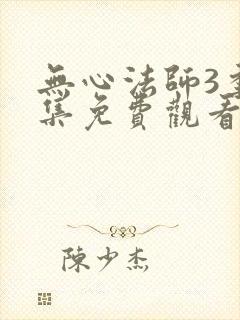 無心法師3全
集免費觀看
陳少杰